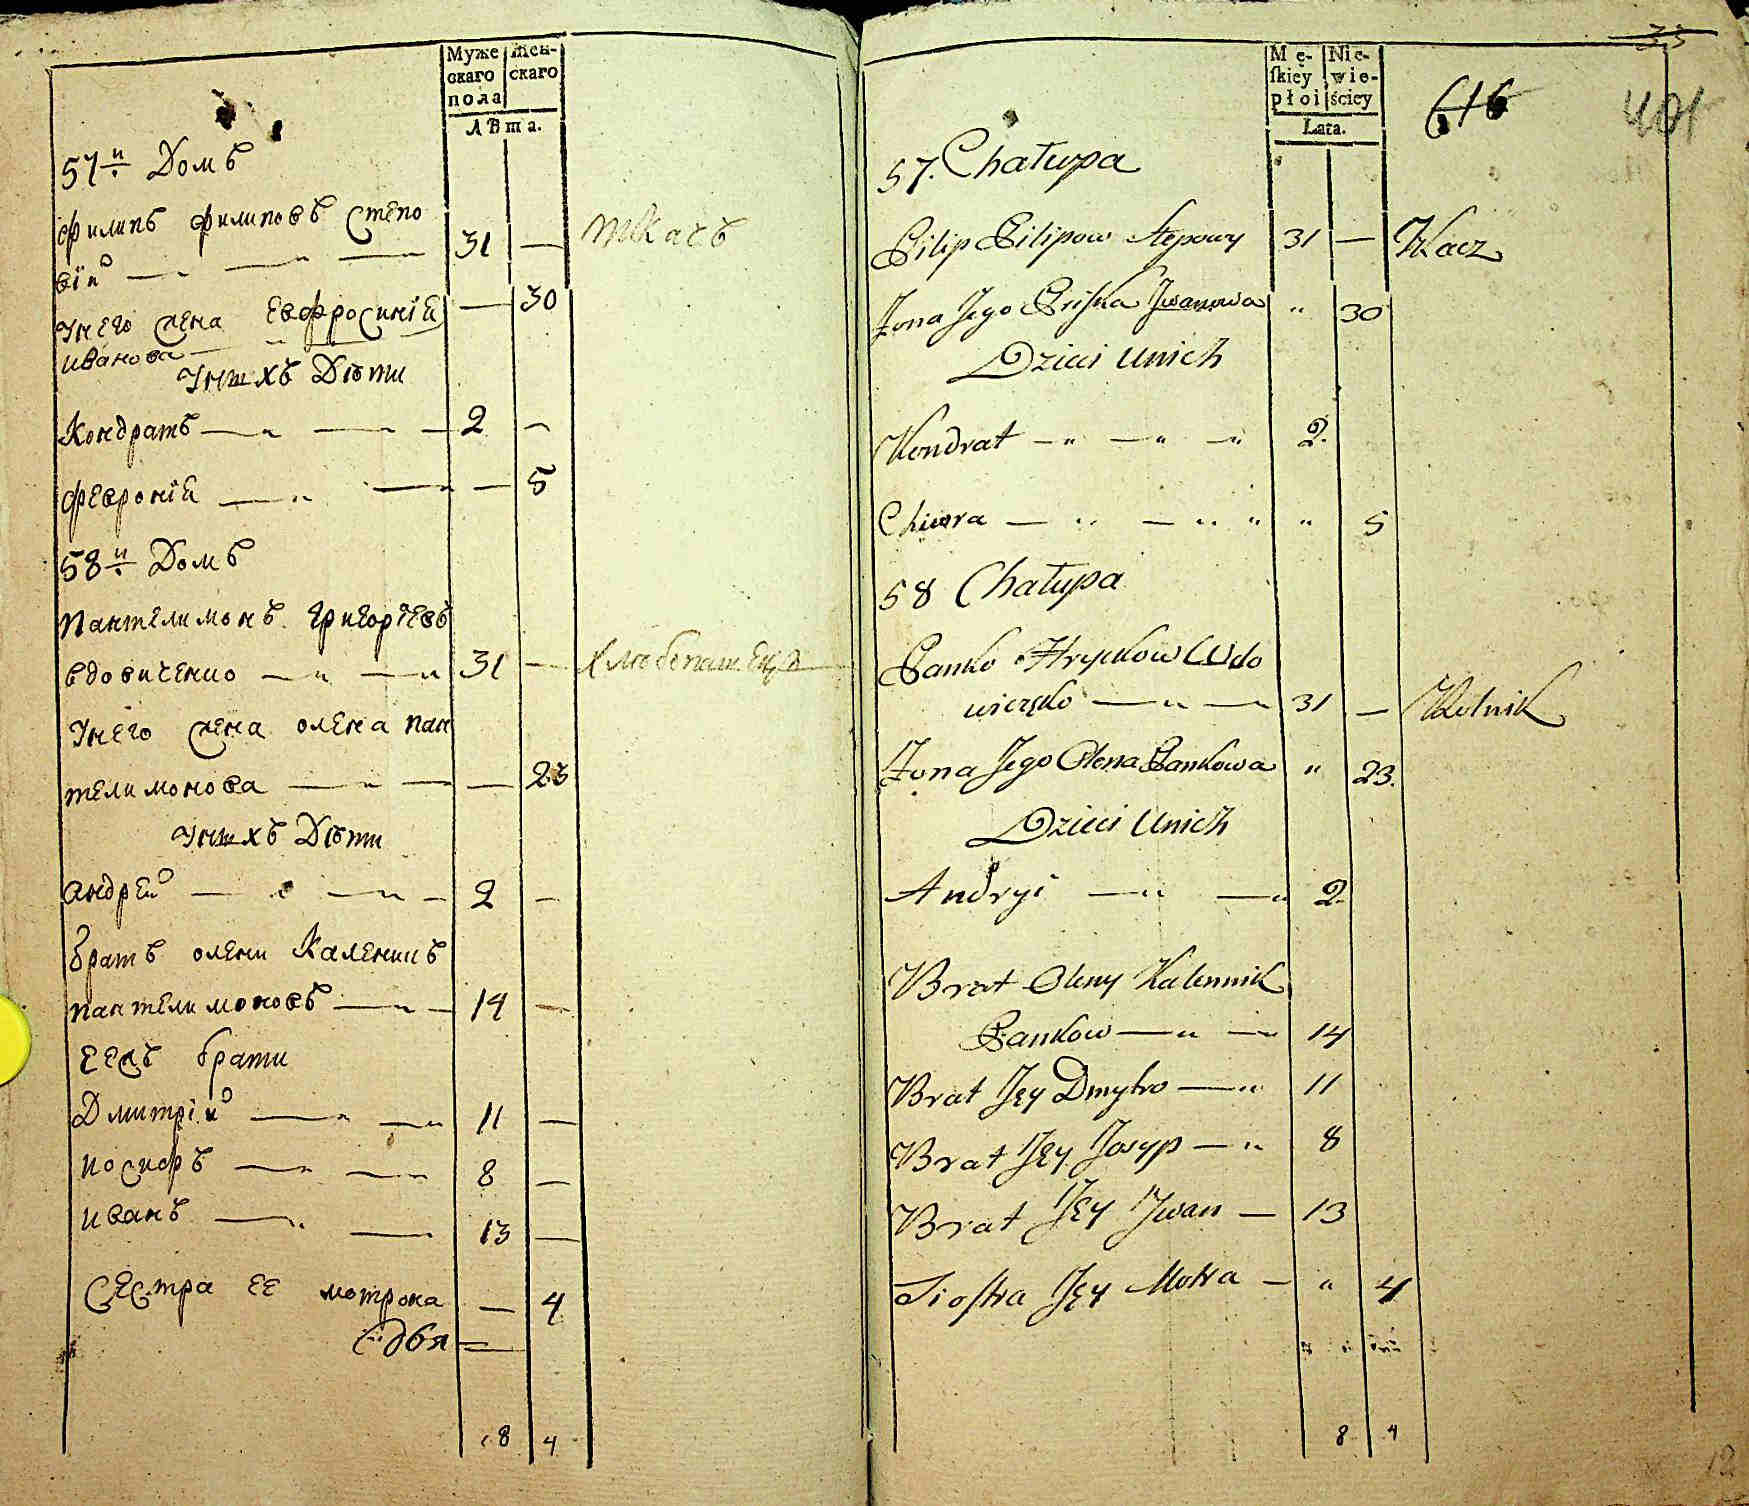 Муже
скаго
пола
Жен-
скаго
ЛѢта.
57й Домъ
Филипъ Филиповъ Степо
вій 31 — ткачъ
Унего жена Евфросинія — 30
Иванова
Унихъ Дѣти
Кондратъ 2 —
Февронія — 5
58й Домъ
Пантелимонъ Григоріевъ
вдовиченко 31 — хлѣбопашецъ
Унего жена олена пан
телимонова — 23
Унихъ Дѣти
Андрей 2 —
Братъ олени Каленикъ
пантелимоновъ 14 —
Еежъ брати
Дмитрій 11 —
иосифъ 8 —
иванъ 13 —
Сестра ее мотрона — 4
8 4
Mę-
skiey
płoi
Nie-
wie-
ściey
Lata.
33
616
401
57. Chałupa
Pilip Pilipow Stepowy 31 — Tkacz
Żona Jego Priska Jwanowa " 30
Dzieci Unich
Kondrat — " — " — " 2.
Chiwra — " — " " " 5
58 Chałupa
Panko Hryckow Wdo
wiczęko — " — 31 — Rolnik
Żona Jego Olena Pankowa " 23.
Dzieci Unich
Andryi — " — " 2.
Brat Oleny Kalennik
Pankow — " — " 14
Brat Jey Dmytro — " 11
Brat Jey Josyp — " 8
Brat Jey Jwan — 13
Siostra Jey Motra — " 4
8 4
12